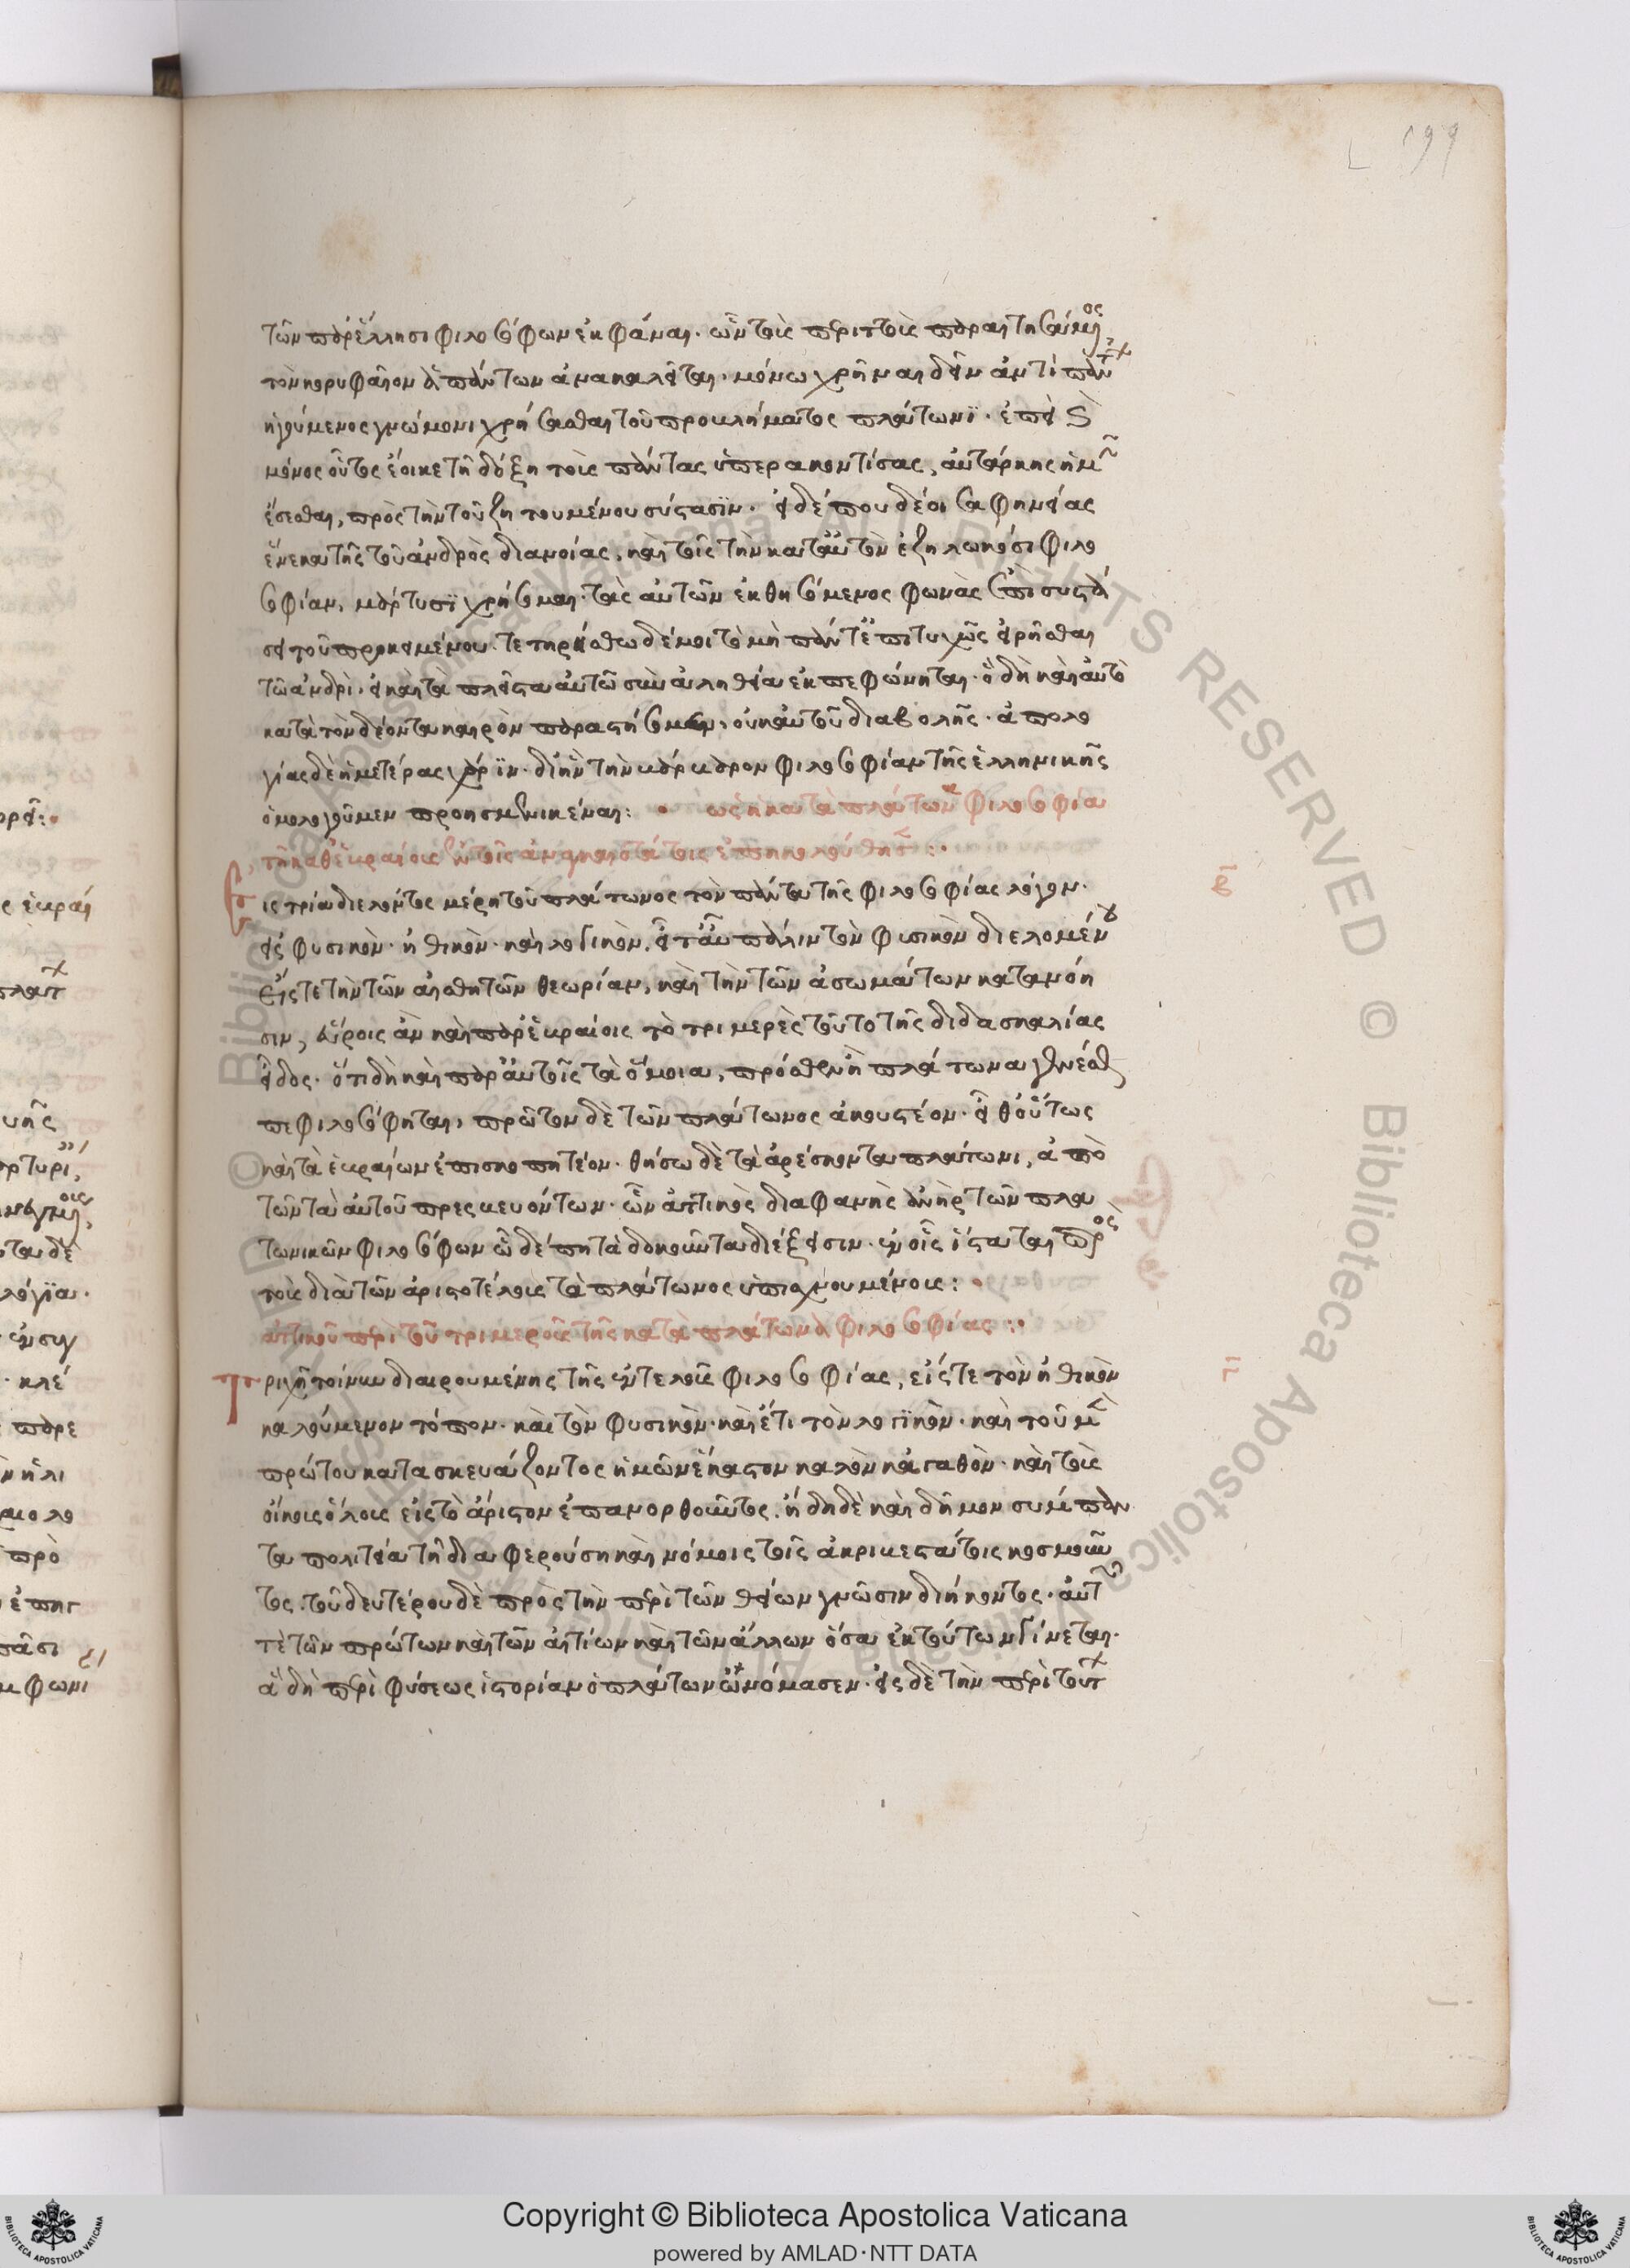 199
τῶν παρ' ἕλλησι φιλοσόφων ἐκφάναι. ὧν τοὺς περιττοὺς παραιτησάμενος
τὸν κορυφαῖον δὲ πάντων ἀνακαλεῖται. μόνω χρῆναι δεῖν ἀντὶ πάντων
ἡγούμενος γνώμονι χρήσασθαι τοῦ προβλήματος πλάτωνι. ἐπεὶ καὶ
μόνος οὗτος ἔοικε τῆ δόξη τοὺς πάντας ὑπερακοντίσας, αὐτάρκης ἡμῖν
ἔσεσθαι, πρὸς τὴν τοῦ ζητουμένου σύστασιν. εἰ δέ που δέοι σαφηνείας
ἕνεκα τῆς τοῦ ἀνδρὸς διανοίας, καὶ τοῖς τὴν κατ' αὐτὸν ἐζηλωκόσι φιλο
σοφίαν, μάρτυσι χρήσομαι. τὰς αὐτῶν ἐκθησόμενος φωνὰς ἐπὶ συστά
σει τοῦ προκειμένου. τετηρήσθω δέ μοι τὸ μὴ πάντ' ἐπιτυχῶς εἰρῆσθαι
τῶ ἀνδρὶ. εἰ καὶ τὰ πλεῖστα αὐτῶ σὺν ἀληθεία ἐκπεφώνηται. ὃ δὴ καὶ αὐτὸ
κατὰ τὸν δέοντα καιρὸν παραστήσομεν, οὐκ αὐτοῦ διαβολῆς. ἀπολο
γίας δὲ ἡμετέρας χάριν. δι' ἣν τὴν βάρβαρον φιλοσοφίαν τῆς ἑλληνικῆς
ὁμολογοῦμεν προησμενικέναι: • ὡς ἡ κατὰ πλάτωνα φιλοσοφία
τῆ καθ' ἑβραίους ἐν τοῖς ἀναγκαιοτάτοις ἐπηκολούθησε:•
Εἰς τρία διελόντος μέρη τοῦ πλάτωνος τὸν πάντα τῆς φιλοσοφίας λόγον.
εἰς φυσικὸν. ἠθικὸν. καὶ λογικὸν. εἶτ' αὖ πάλιν τὸν φυσικὸν διελομένου
εἴς τε τὴν τῶν αἰσθητῶν θεωρίαν, καὶ τὴν τῶν ἀσωμάτων κατανόη
σιν, εὕροις ἂν καὶ παρ' ἑβραίοις τὸ τριμερὲς τοῦτο τῆς διδασκαλίας
εἶδος. ὅτι δὴ καὶ παρ' αὐτοῖς τὰ ὅμοια, πρόσθεν ἢ πλάτωνα γενέσθαι
πεφιλοσόφηται, πρῶτον δὲ τῶν πλάτωνος ἀκουστέον. εἶθ' οὕτως
καὶ τὰ ἑβραίων ἐπισκοπητέον. θήσω δὲ τὰ ἀρέσκοντα πλάτωνι, ἀπὸ
τῶν τὰ αὐτοῦ πρεσβευόντων. ὧν ἀττικὸς διαφανὴς ἀνὴρ τῶν πλα
τωνικῶν φιλοσόφων ὧδέ πη τὰ δοκοῦντα διέξεισιν. ἐν οἷς ἵσταται πρὸς
τοὺς διὰ τῶν ἀριστοτέλους τὰ πλάτωνος ὑπισχνουμένους: •
ἀττικοῦ περὶ τοῦ τριμεροῦς τῆς κατὰ πλάτωνα φιλοσοφίας:•
Τριχῆ τοίνυν διαιρουμένης τῆς ἐντελοῦς φιλοσοφίας, εἴς τε τὸν ἠθικὸν
καλούμενον τόπον. καὶ τὸν φυσικὸν. καὶ ἔτι τὸν λογικὸν. καὶ τοῦ μὲν
πρώτου κατασκευάζοντος ἡμῶν ἕκαστον καλὸν κἀγαθὸν. καὶ τοὺς
οἴκους ὅλους εἰς τὸ ἄριστον ἐπανορθοῦντος. ἤδη δὲ καὶ δῆμον σύμπαν
τα πολιτεία τῆ διαφερούση καὶ νόμοις τοῖς ἀκριβεστάτοις κοσμοῦν
τος. τοῦ δευτέρου δὲ πρὸς τὴν περὶ τῶν θείων γνῶσιν διήκοντος. αὐτῶν
τὲ τῶν πρώτων καὶ τῶν αἰτίων καὶ τῶν ἄλλων ὅσα ἐκ τούτων γίνεται.
ἃ δὴ περὶ φύσεως ἱστορίαν ὁ πλάτων ὠνόμασεν. εἰς δὲ τὴν περὶ τούτων
Copyright © Biblioteca Apostolica Vaticana
powered by AMLAD·NTT DATA